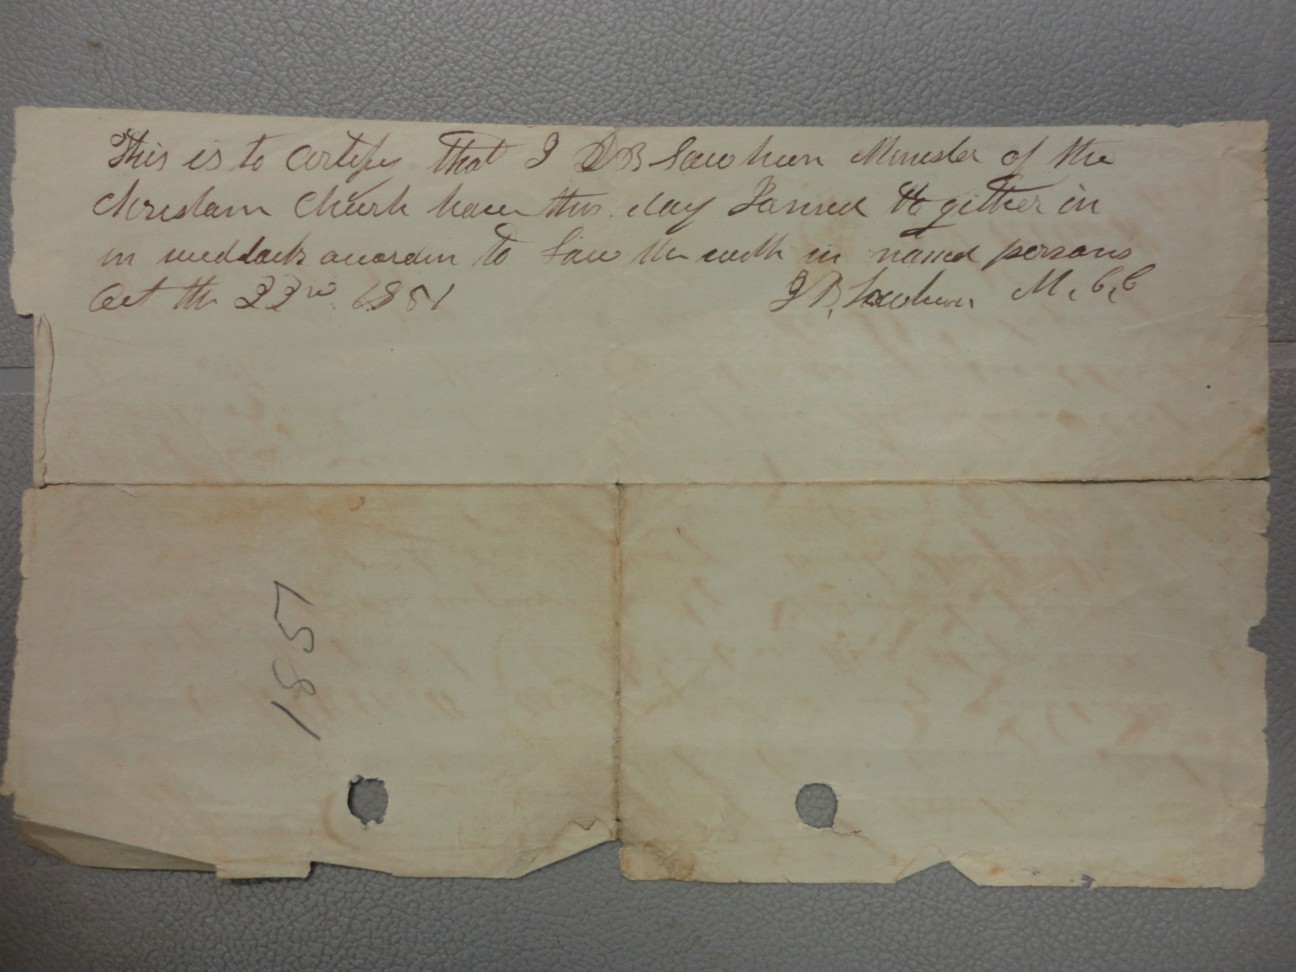 This is to certify that I D B Lawhorn Minester of the
Chrestam Church have this day Joined to gither in
in weddlack accordin to Law the with in named persons
Oct the 23rd 1851
J B Lawhorn M. C. C
1851